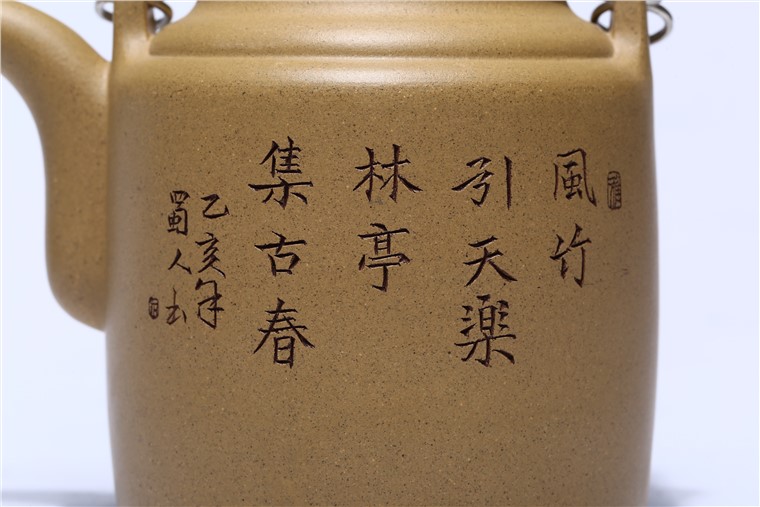 風竹
引天樂
林亭
集古春
乙亥年
蜀人